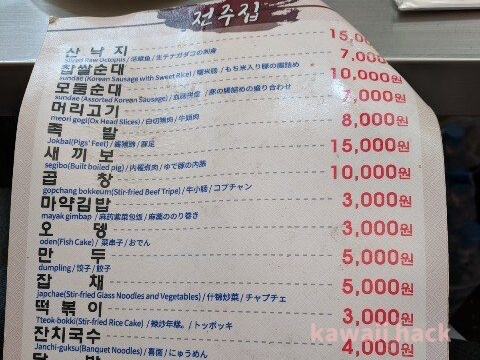 전주집
산 낙 지 15,00
Sliced Raw Octopus / 活章鱼 / 生テナガダコの刺身
찹쌀순대 7,000
sundae (Korean Sausage with Sweet Rice) / 糯米肠 / もち米入り豚の腸詰め
모둠순대 10,000원
sundae (Assorted Korean Sausage) / 血肠拼盘 / 豚の腸詰めの盛り合わせ
머리고기 7,000원
meori gogi(Ox Head Slices) / 白切猪肉 / 牛頭肉
족 발 8,000원
Jokbal(Pigs' Feet) / 酱猪蹄 / 豚足
새 끼 보 15,000원
segibo(Built boiled pig) / 内褪煮肉 / ゆで豚の内臓
곱 창 10,000원
gopchang bokkeum(Stir-fried Beef Tripe) / 牛小肠 / コプチャン
마약김밥 3,000원
mayak gimbap / 麻药紫菜包饭 / 麻薬ののり巻き
오 뎅 3,000원
oden(Fish Cake) / 菜串子 / おでん
만 두 5,000원
dumpling / 饺子 / 餃子
잡 채 5,000원
japchae(Stir-fried Glass Noodles and Vegetables) / 什锦炒菜 / チャプチェ
떡 볶 이 3,000원
Tteok-bokki(Stir-fried Rice Cake) / 辣炒年糕。/ トッポッキ
잔치국수 4,000원
Janchi-guksu(Banquet Noodles) / 喜面 / にゅうめん
kawaii hack